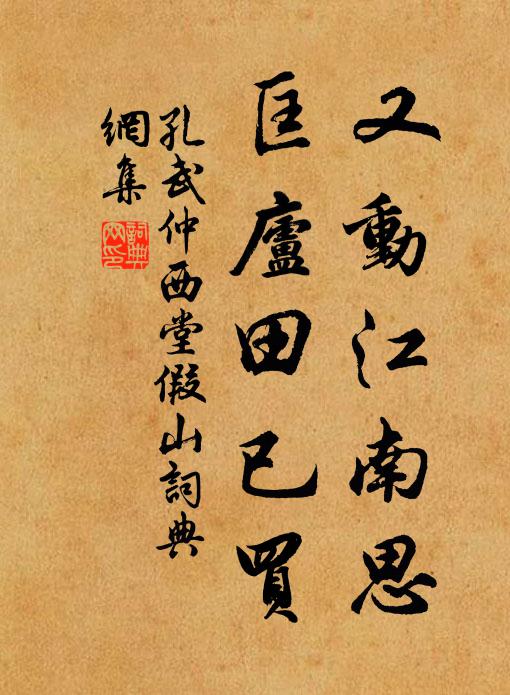 又動江南思
匡廬田已買
孔武仲西堂假山詞典
網集
詞典網印